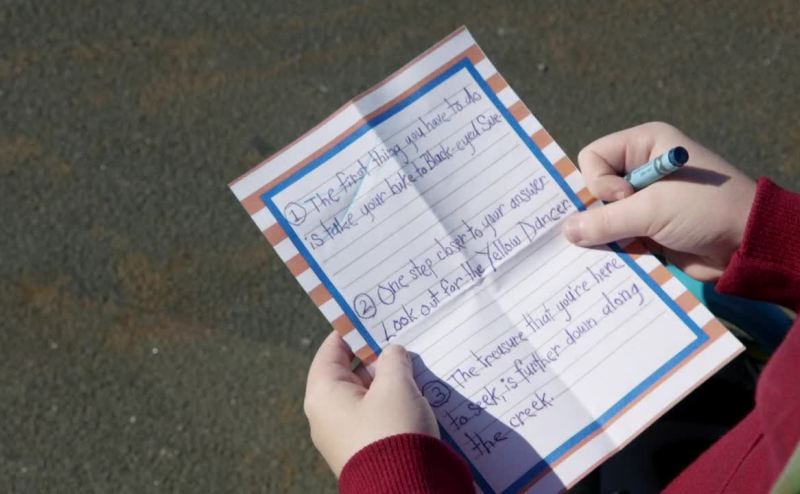 ① The first thing you have to do
is take your bike to Black-eyed Sue.
② One step closer to your answer
Look out for the Yellow Dancer.
③ The treasure that you're here
to seek, is further down along
the creek.